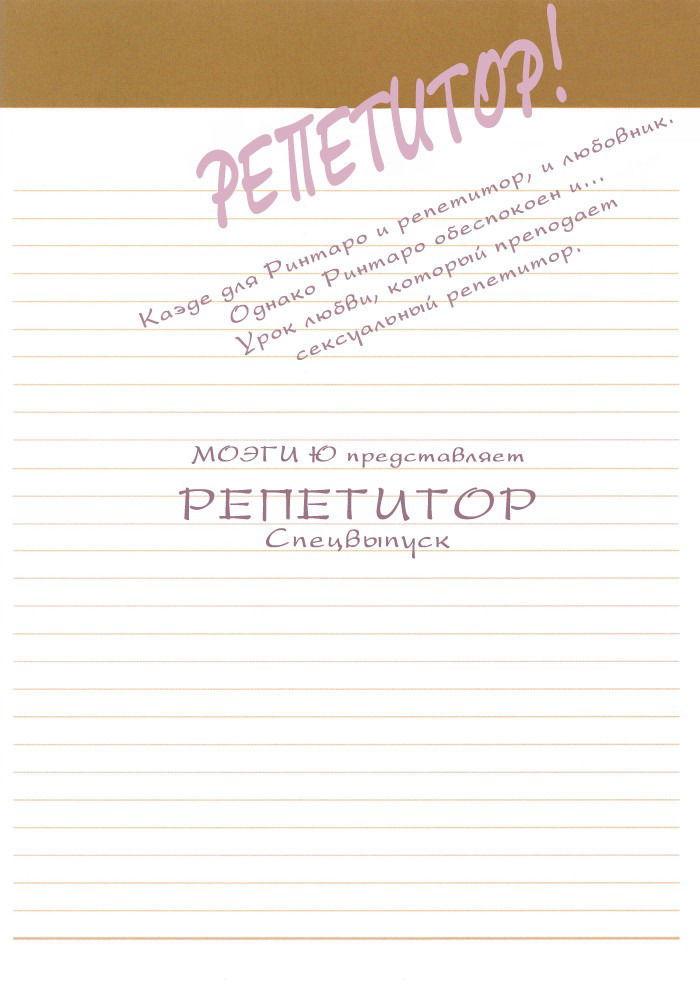 РЕПЕТИТОР!
Каэде для Ринтаро и репетитор, и любовник.
Однако Ринтаро обеспокоен и...
Урок любви, который преподает
сексуальный репетитор.
МОЭГИ Ю представляет
РЕПЕТИТОР
Спецвыпуск